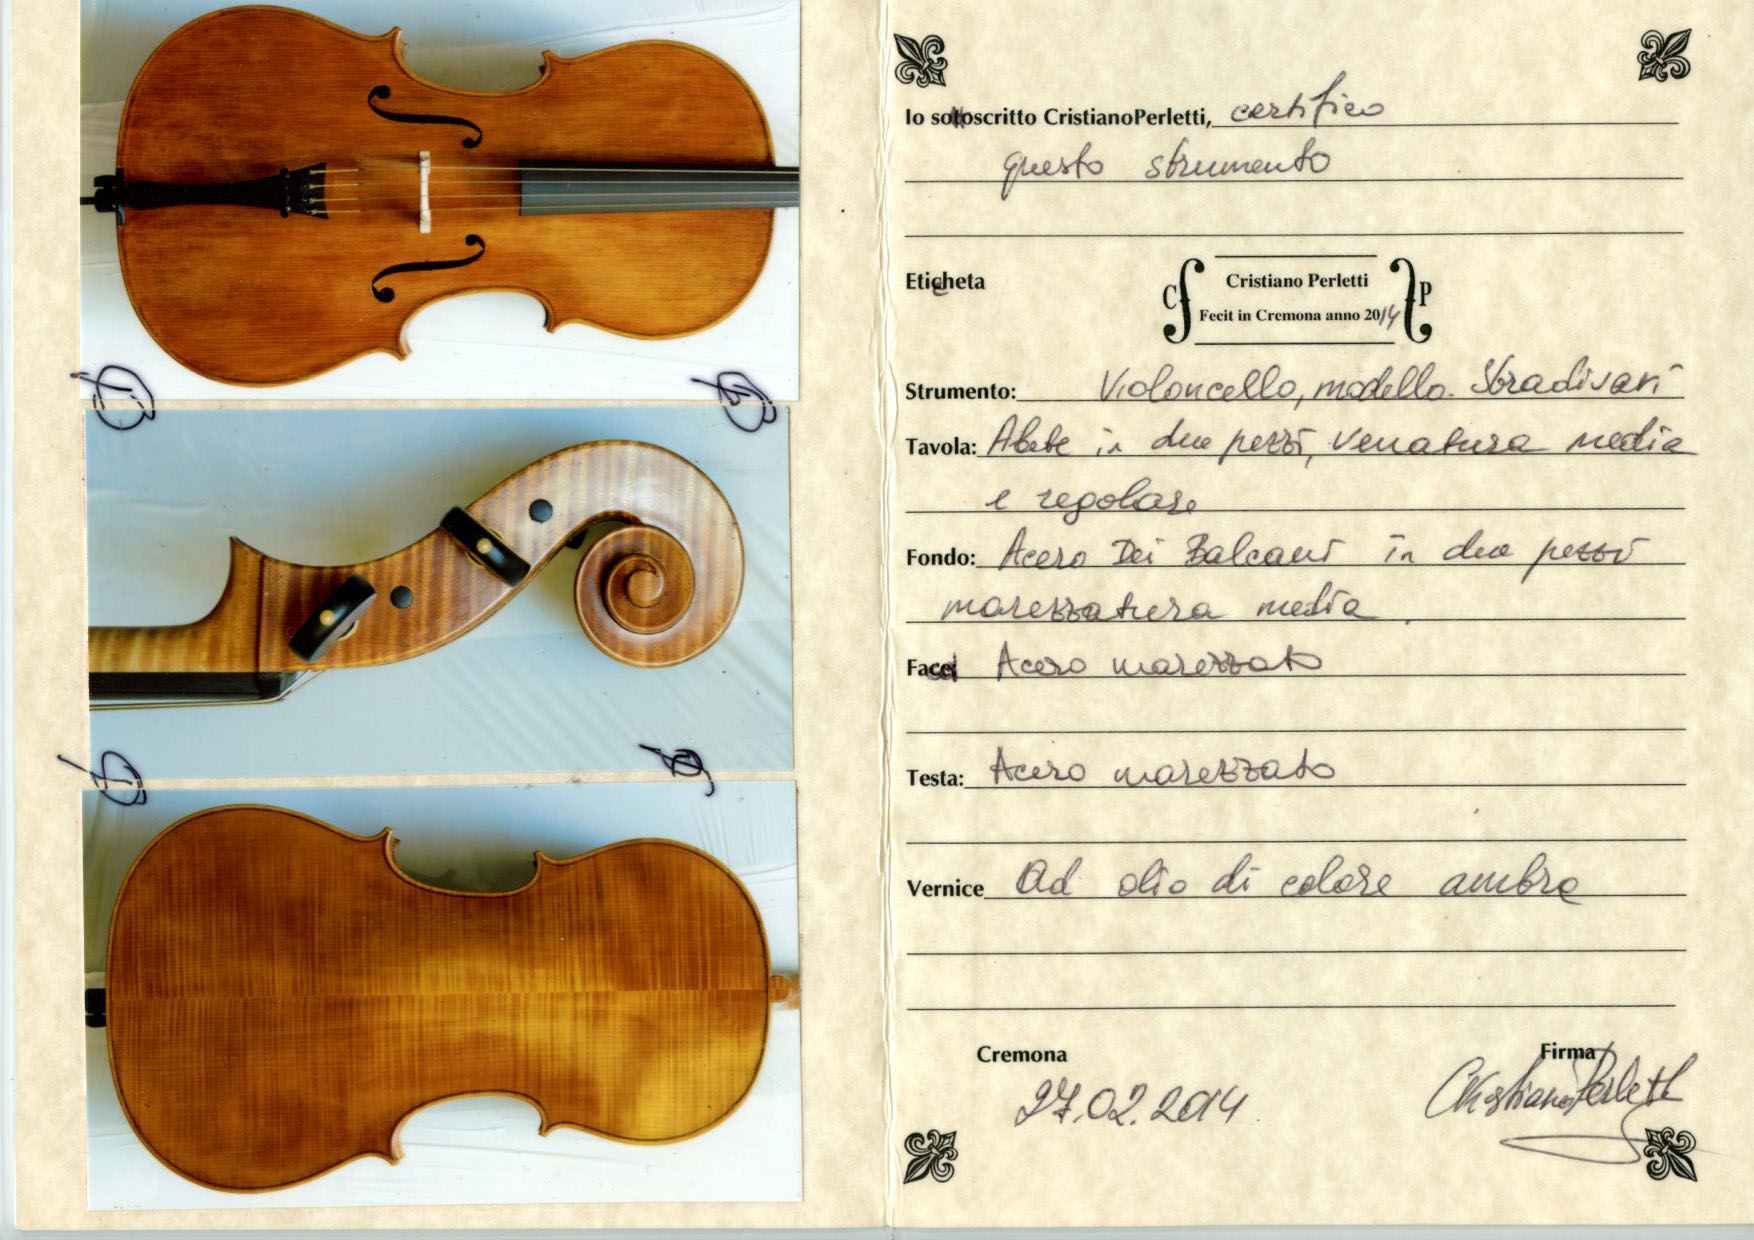 Io sottoscritto CristianoPerletti, certifico
questo strumento
Eticheta
C Cristiano Perletti P
Fecit in Cremona anno 2014
Strumento: Violoncello, modello Stradivari
Tavola: Abete in due pezzi, venatura media
e regolare
Fondo: Acero Dei Balcani in due pezzi
marezzatura media
Acero marezzato
Testa: Acero marezzato
Vernice Ad olio di colore ambra
Cremona Firma
27.02.2014 Cristiano Perletti